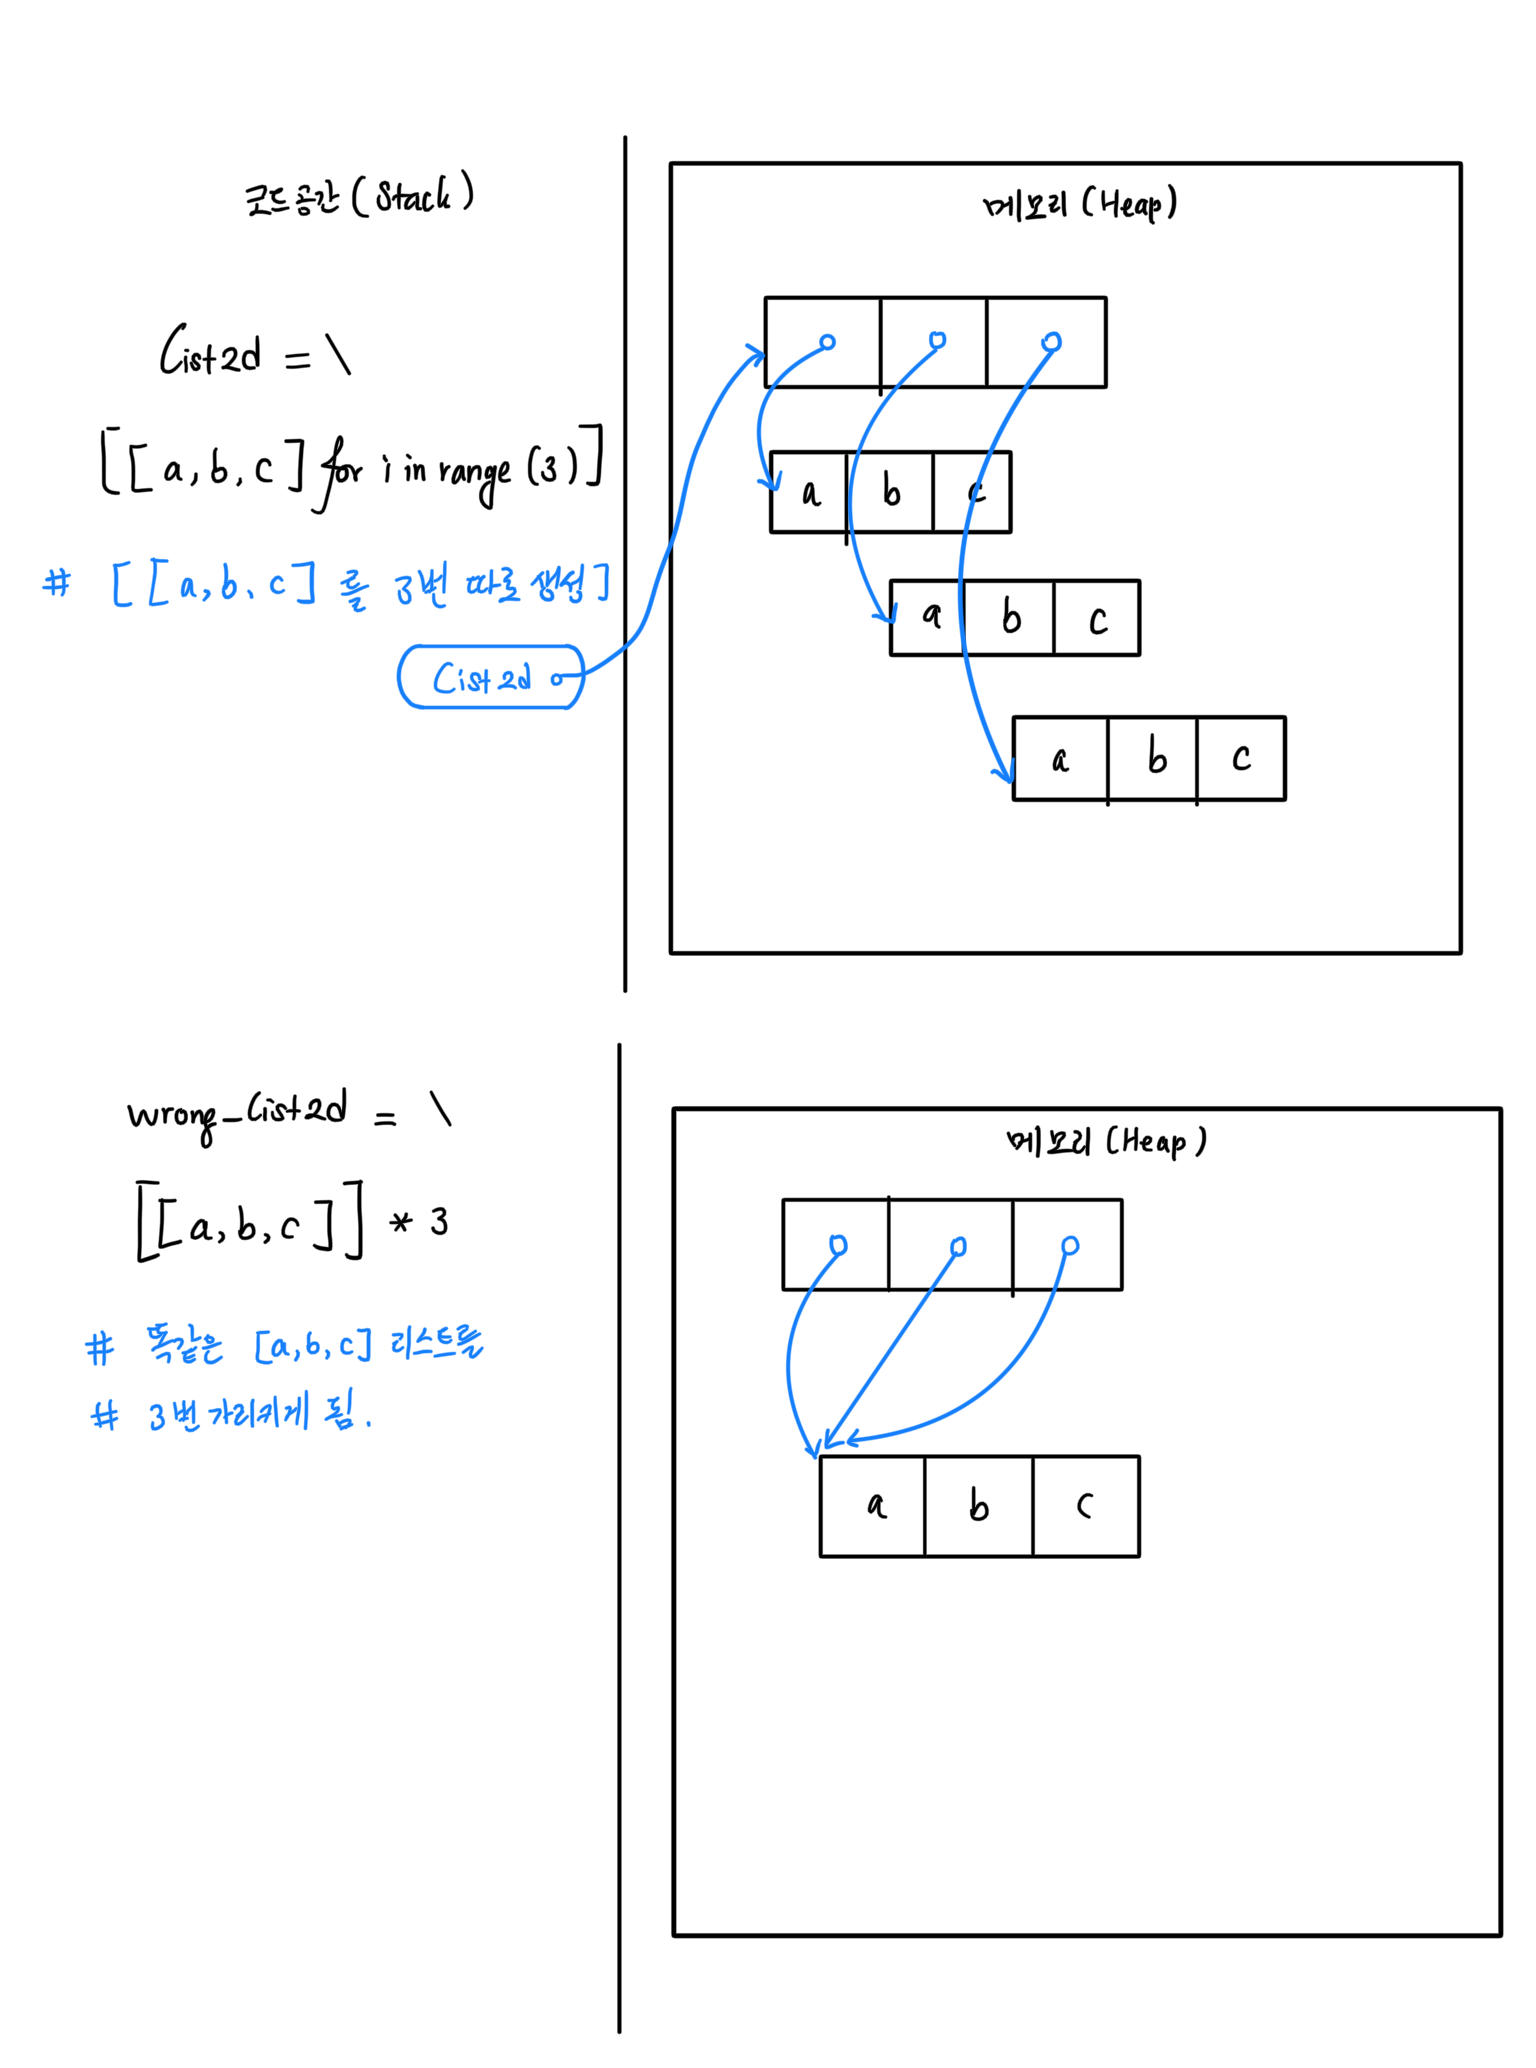 코드공간 (Stack)
List2d = \
[[a, b, c] for i in range (3)]
# [[a, b, c] 를 3번 따로 생성]
List2d
메모리 (Heap)
a b c
a b c
a b c
wrong_List2d = \
[[a, b, c]] * 3
# 똑같은 [a, b, c] 리스트를
# 3번 가리키게 됨.
메모리 (Heap)
a b c